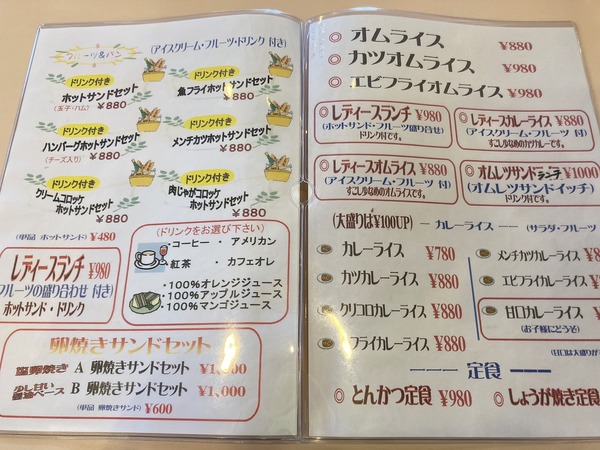 フルーツ&パン
(アイスクリーム・フルーツ・ドリンク 付き)
ドリンク付き
ホットサンドセット
(玉子・ハム)
¥880
ドリンク付き
魚フライホットサンドセット
¥880
ドリンク付き
ハンバーグホットサンドセット
(チーズ入り)
¥880
ドリンク付き
メンチカツホットサンドセット
¥880
ドリンク付き
クリームコロッケ
ホットサンドセット
¥880
ドリンク付き
肉じゃがコロッケ
ホットサンドセット
¥880
(単品 ホットサンド) ¥480
レディースランチ ¥980
フルーツの盛り合わせ 付き)
ホットサンド・ドリンク
(ドリンクをお選び下さい)
・コーヒー ・ アメリカン
・紅茶 ・ カフェオレ
・100%オレンジジュース
・100%アップルジュース
・100%マンゴジュース
卵焼きサンドセット
塩卵焼き A 卵焼きサンドセット ¥1,000
少し甘い
醤油ベース B 卵焼きサンドセット ¥1,000
(単品 卵焼きサンド) ¥600
◎ オムライス ¥880
◎ カツオムライス ¥980
◎ エビフライオムライス ¥980
◎ レディースランチ ¥980
(ホットサンド・フルーツ盛り合せ)
ドリンク付です。
◎ レディースカレーライス ¥880
(アイスクリーム・フルーツ 付)
すこし少なめのカツカレーです。
◎ レディースオムライス ¥880
(アイスクリーム・フルーツ 付)
すこし少なめのオムライスです。
◎ オムレツサンドランチ ¥1000
(オムレツサンドイッチ)
ドリンク付です。
(大盛りは¥100UP) ― カレーライス ―― (サラダ・フルーツ
カレーライス ¥780
カツカレーライス ¥880
クリコロカレーライス ¥880
フライカレーライス ¥880
メンチカツカレーライス
エビフライカレーライス
◎ 甘口カレーライス
(お子様にどうぞ)
――― 定食 ―――
◎ とんかつ定食 ¥980
◎ しょうが焼き定食